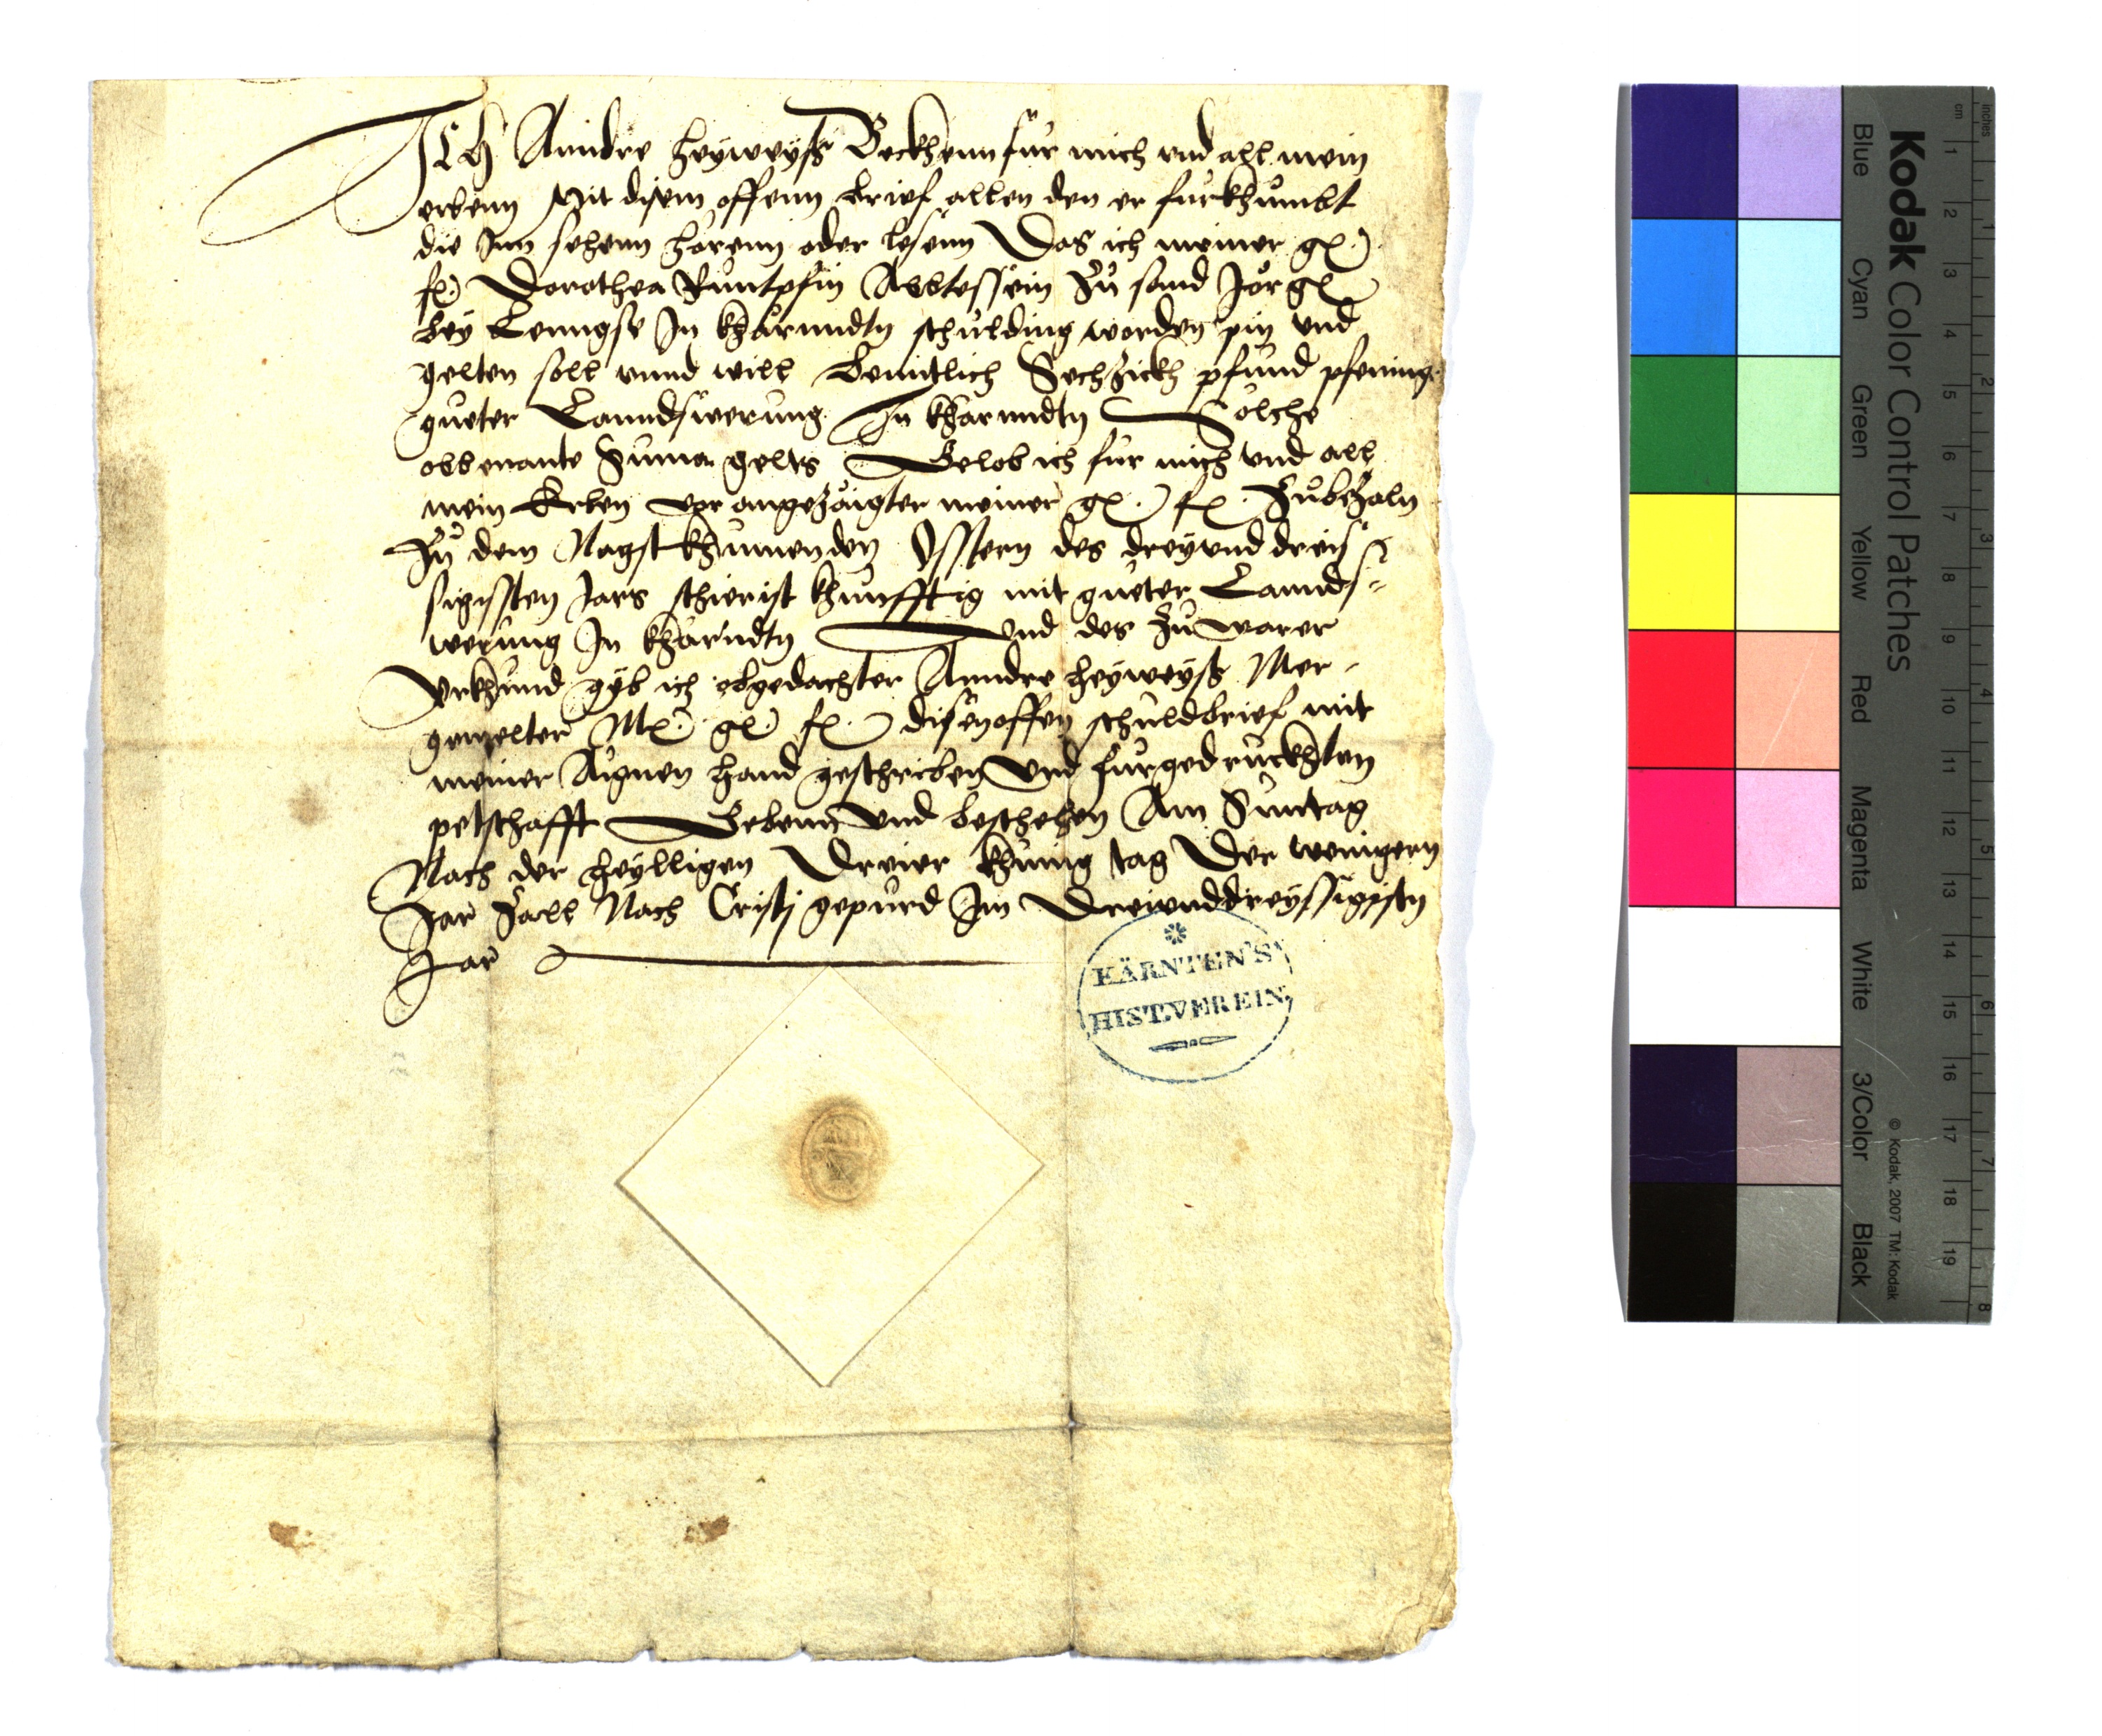 Ich Anndre heyweyß Beckhenn für mich vnd all mein
erbenn Mit disem offenn brief allen den er fürkhumbt
die Inn sehenn hörenn oder lesenn Das ich meiner g.
f. Dorothea Abbtessein Zu sand Jörg
bey Lenngse In khärnndtn schulding worden pin vnd
gelten soll vnnd will benntlich Sechzickh pfund pfening
gueter Lanndswerung In kharnndtn Solche
obbenante Suma gelts Gelob ich für mich vnd all
mein Erben vor angezaigter meiner g. f. Zubezaln
Zu dem Nagst khumenden Osstern des dreyvnd dreis
sigissten Jars schierist khunfftig mit gueter Lannds
werung In khärndtn Vnd des zu warer
Vrkhund gyb ich obgedachter Anndre heyweyß Mer
gemelter M. g. f. disen offen schuldbrief mit
meiner Aignen hand geschriben Vnd fürgedruckhten
petschafft Gebenn Vnd beschehen Am Suntag
Nach der heylligen Dreier khunig tag Der wenigern
Jar Zall Nach Cristj gepurd Im Dreivnddreyssigistn
Jar
KÄRNTEN'S
HIST.VEREIN
Kodak Color Control Patches
Blue Cyan Green Yellow Red Magenta White 3/Color Black
© Kodak, 2007 TM: Kodak
cm 1 2 3 4 5 6 7 8 9 10 11 12 13 14 15 16 17 18 19
inches 1 2 3 4 5 6 7 8